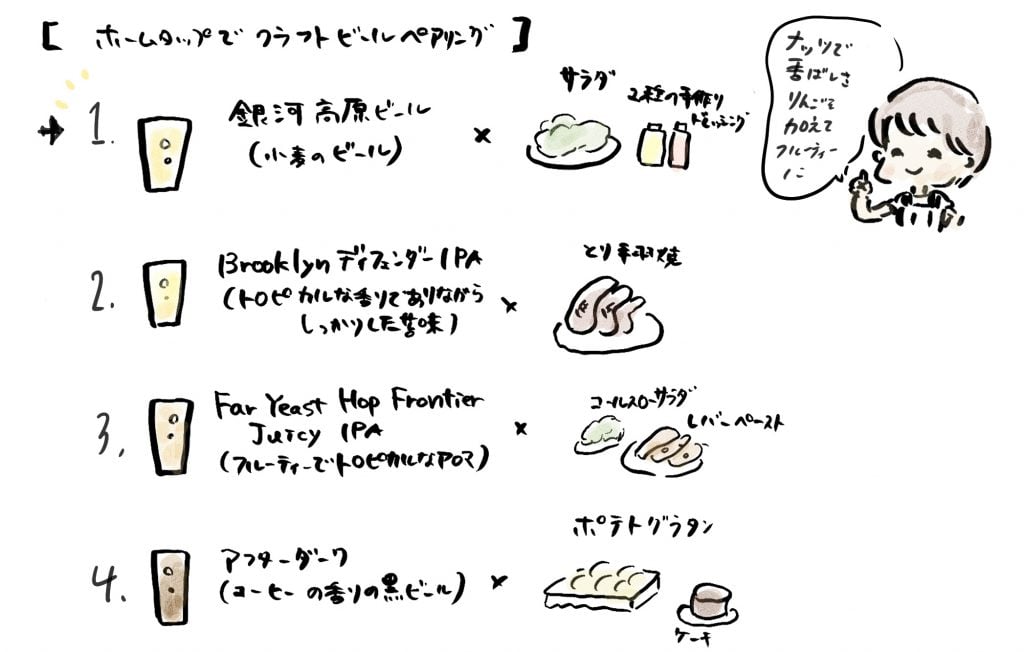 [ ホームタップで クラフトビールペアリング ]
1.
銀河高原ビール
(小麦のビール)
×
サラダ
2種の手作り
ドレッシング
ナッツで
香ばしさ
りんごを
加えて
フルーティー
に
2.
Brooklyn ディフェンダーIPA
(トロピカルな香りでありながら
しっかりした苦味)
×
とり手羽焼
3.
Far Yeast Hop Frontier
Juicy IPA
(フルーティーでトロピカルなアロマ)
×
コールスローサラダ
レバーペースト
4.
アフターダーク
(コーヒーの香りの黒ビール)
×
ポテトグラタン
ケーキ